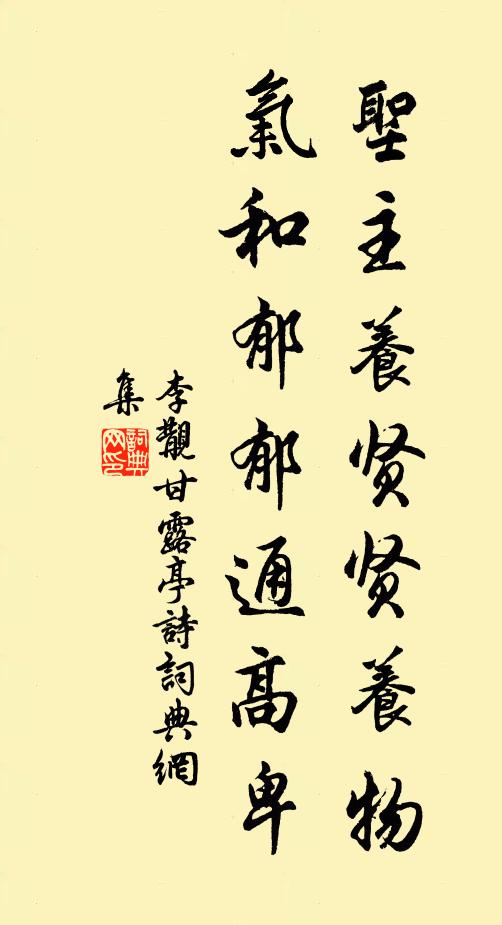 聖主養贤贤養物
氣和郁郁通高卑
李覯甘露亭詩詞典網
集
詞典网印